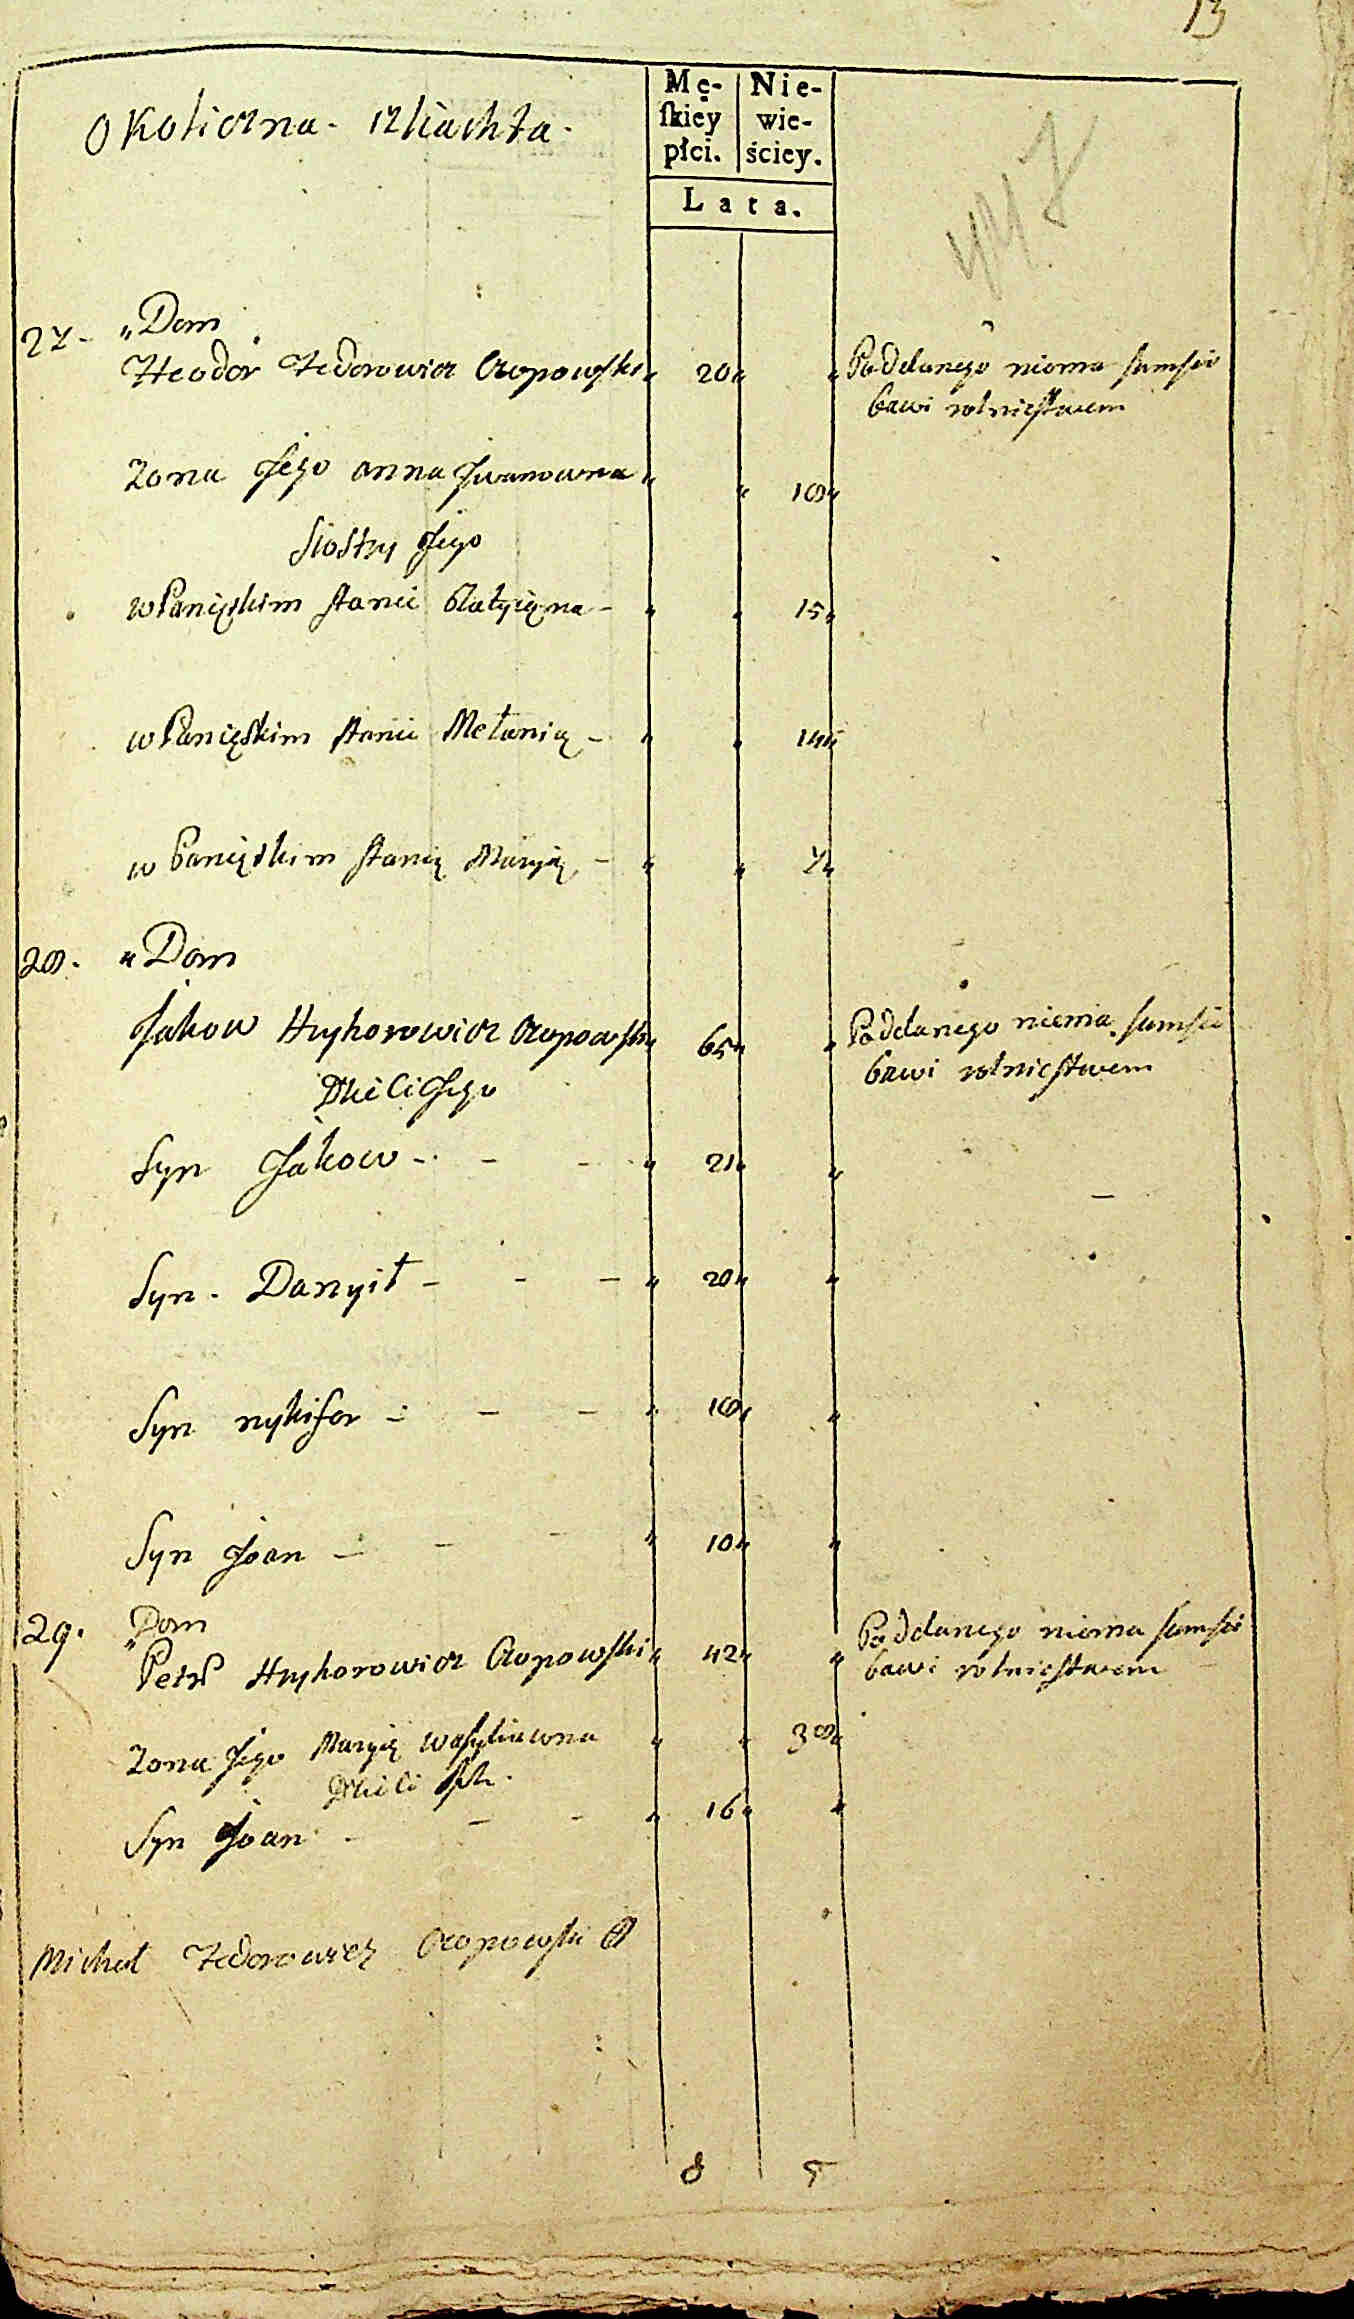 13
Okoliczna szliachta
Mę-
ſkiey
płci.
Nie-
wie-
ściey.
Lata.
27. Dom
Theodor Fedorowicz Czopowski 20 Poddanego niema samsie
bawi rolnictwem
Zona Jego Anna Iwanowna 18
Siostry Jego
w Panięskim stanie 15
w Panięskim stanie Mełanią 14
w Panięskim stanię Maryią 7
28. Dom
Jakow Hryhorowicz Czopowski 65 Poddanego niema samsie
bawi rolnictwem
Dzieci Jego
Syn Jakow 21
Syn Danyił 20
Syn nykifor 18
Syn Joan 10
29. Dom
Petro Hryhorowicz Czopowski 42 Poddanego niema samsie
bawi rolnictwem
Zona Jego Maryią Wasyliewna 38
Dzieci Ich
Syn Joan 16
Michał Fedorowicz Czopowski
8 5